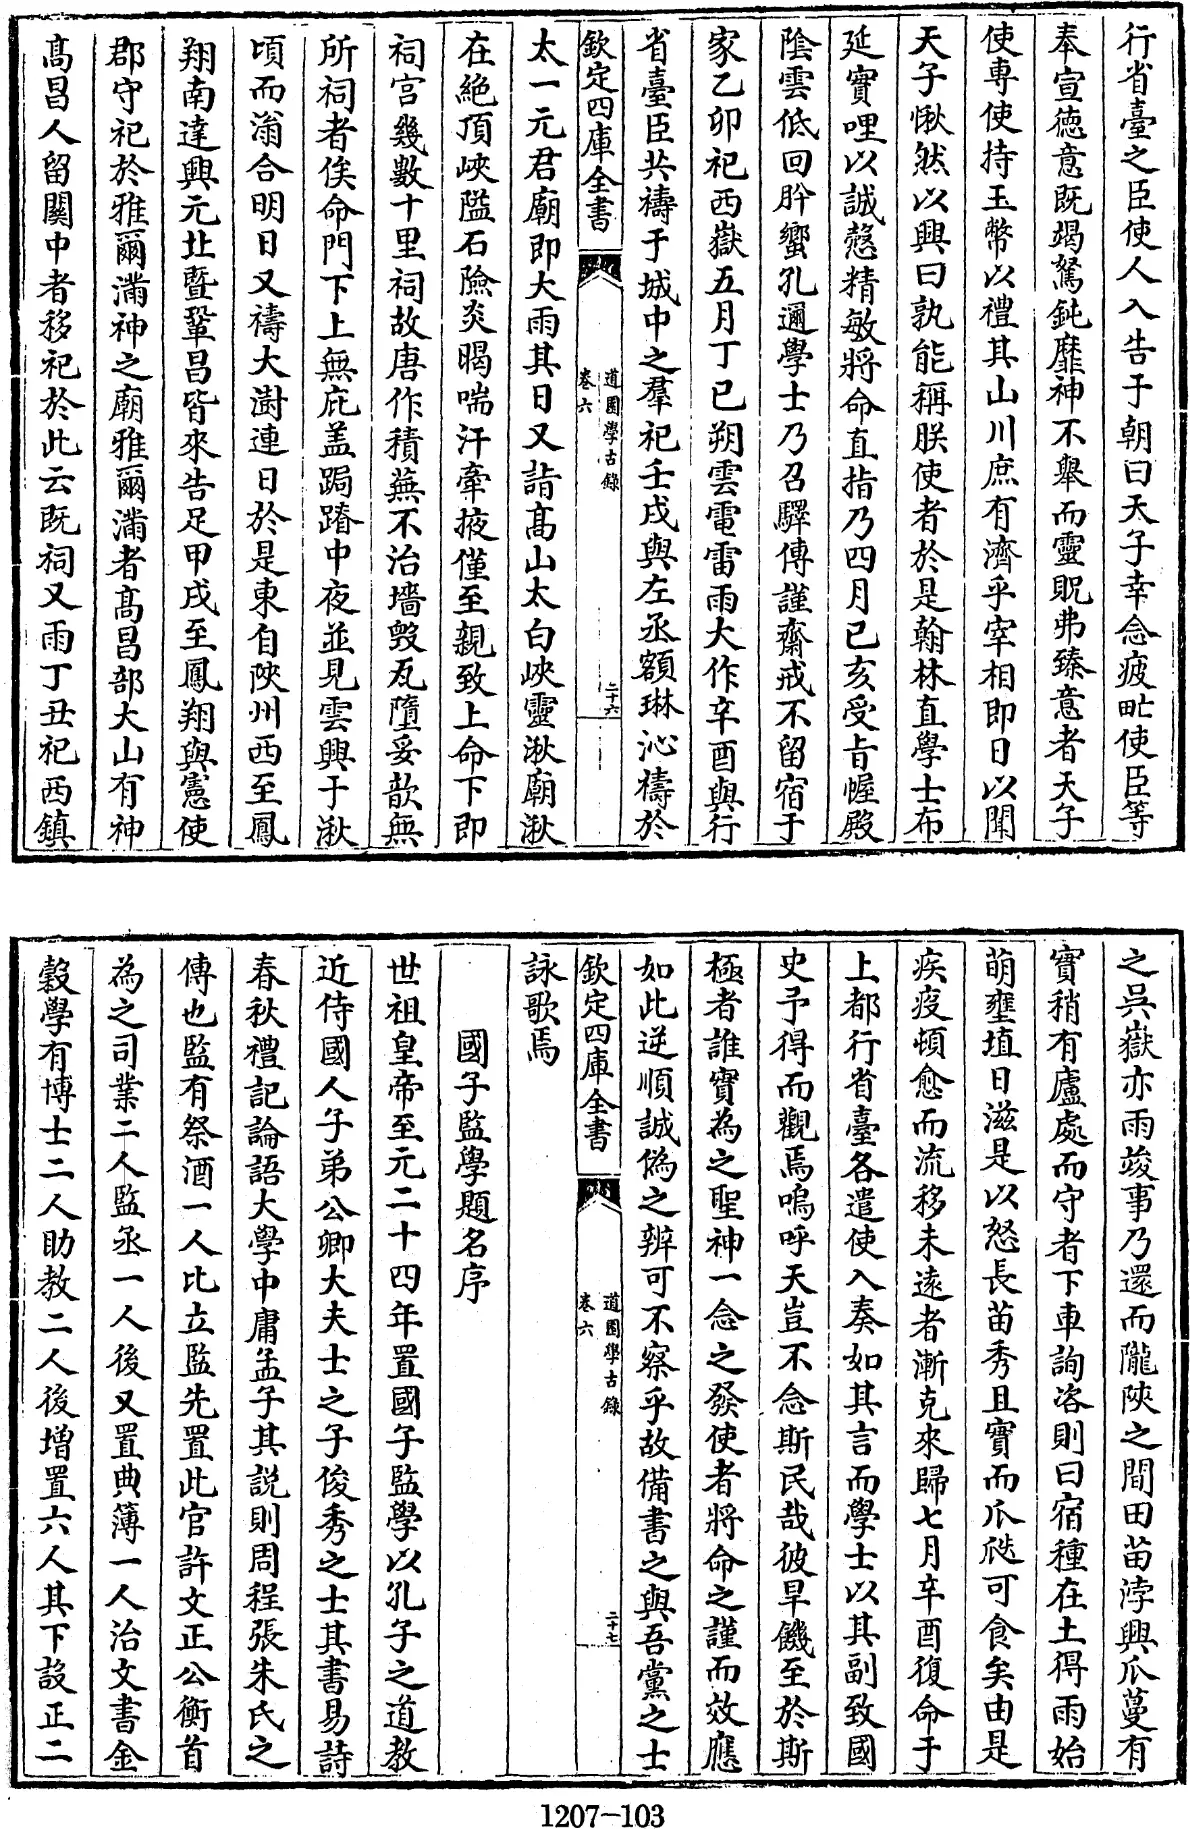 行省臺之臣使人入告于朝曰天子幸念疲甿使臣等
奉宣徳意既竭駑鈍靡神不舉而靈貺弗臻意者天子
使専使持玉幣以禮其山川庶有濟乎宰相即日以聞
天子愀然以興曰孰能稱朕使者於是翰林直學士布
延實哩以誠慤精敏將命直指乃四月己亥受旨幄殿
陰雲低回肸蠁孔邇學士乃召驛傳謹齋戒不留宿于
家乙卯祀西嶽五月丁巳朔雲電雷雨大作辛酉與行
省臺臣共禱于城中之羣祀壬戌與左丞額琳沁禱於
欽定四庫全書
道園學古錄
卷六
二十六
太一元君廟即大雨其日又詣髙山太白峽靈湫廟湫
在絶頂峽隘石險炎暍喘汗牽掖僅至親致上命下即
祠宫幾數十里祠故唐作積蕪不治墻毁瓦墮妥歆無
所祠者俟命門下上無庇盖跼蹐中夜並見雲興于湫
頃而滃合明日又禱大澍連日於是東自陜州西至鳳
翔南達興元北暨鞏昌皆來告足甲戌至鳳翔與憲使
郡守祀於雅爾滿神之廟雅爾滿者髙昌部大山有神
髙昌人留闗中者移祀於此云既祠又雨丁丑祀西鎮
之呉嶽亦雨竣事乃還而隴陜之間田苗浡興瓜蔓有
實稍有廬處而守者下車詢咨則曰宿種在土得雨始
萌壅埴日滋是以怒長苗秀且實而瓜瓞可食矣由是
疾疫頓愈而流移未遠者漸克來歸七月辛酉復命于
上都行省臺各遣使入奏如其言而學士以其副致國
史予得而觀焉嗚呼天豈不念斯民哉彼旱饑至於斯
極者誰實為之聖神一念之發使者將命之謹而效應
如此逆順誠偽之辨可不察乎故備書之與吾黨之士
欽定四庫全書
道園學古錄
卷六
二十七
詠歌焉
國子監學題名序
世祖皇帝至元二十四年置國子監學以孔子之道教
近侍國人子弟公卿大夫士之子俊秀之士其書易詩
春秋禮記論語大學中庸孟子其說則周程張朱氏之
傳也監有祭酒一人比立監先置此官許文正公衡首
為之司業二人監丞一人後又置典簿一人治文書金
穀學有博士二人助教二人後增置六人其下設正二
1207-103